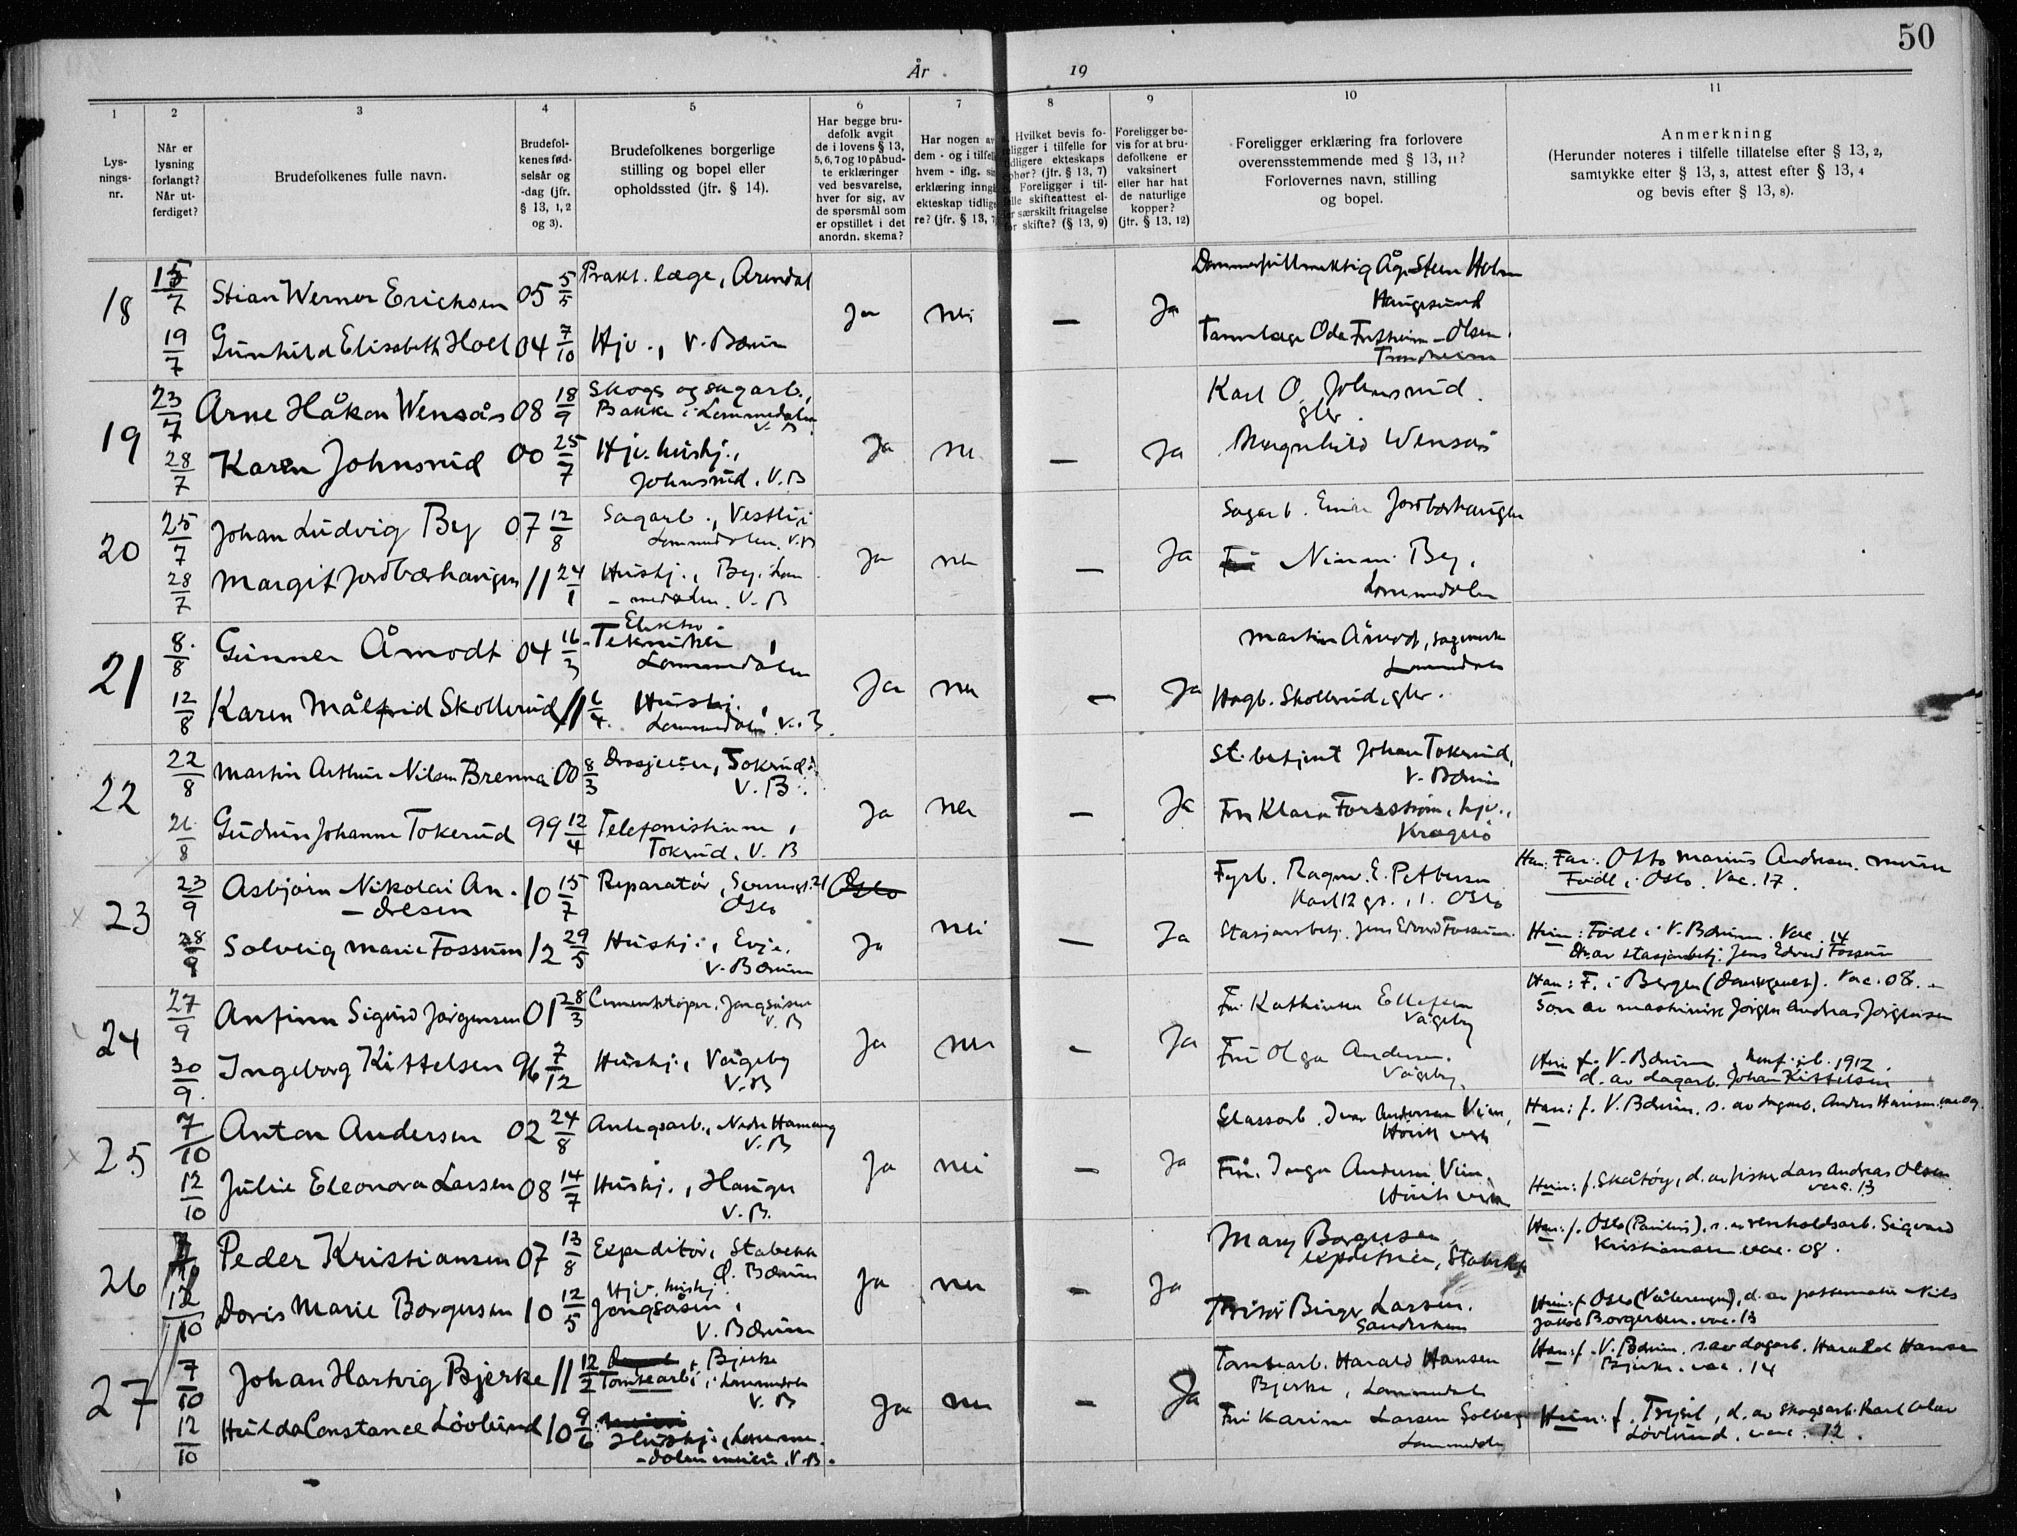 50
År 19
1 2 3 4 5 6 7 8 9 10 11
Lys-
nings-
nr.
Når er
lysning
forlangt?
Når ut-
ferdiget?
Brudefolkenes fulle navn.
Brudefol-
kenes fød-
selsår og
-dag (jfr.
§ 13, 1, 2
og 3).
Brudefolkenes borgerlige
stilling og bopel eller
opholdssted (jfr. § 14).
Har begge bru-
defolk avgit
de i lovens § 13,
5, 6, 7 og 10 påbud-
te erklæringer
ved besvarelse,
hver for sig, av
de spørsmål som
er opstillet i det
anordn. skema?
Har nogen av
dem - og i tilfelle
hvem - iflg. sin
erklæring inngå
ekteskap tidlige
re? (jfr. § 13, 7
Hvilket bevis fo-
religger i tilfelle for
tidligere ekteskaps
ophør? (jfr. § 13, 7)
Foreligger i til-
felle skifteattest el-
ler særskilt fritagelse
for skifte? (§ 13, 9)
Foreligger be-
vis for at bru-
defolkene er
vaksinert
eller har hat
de naturlige
kopper?
(jfr. § 13, 12)
Foreligger erklæring fra forlovere
overensstemmende med § 13, 11?
Forlovernes navn, stilling
og bopel.
Anmerkning
(Herunder noteres i tilfelle tillatelse efter § 13, 2,
samtykke efter § 13, 3, attest efter § 13, 4
og bevis efter § 13, 8).
18 15/7 Stian Werner Erichsen 05 5/5 Prakt. læge, Arendal Ja nei — Ja Dommerfullmektig Åge Steen Holm
Haugesund
19/7 Gunhild Elisabeth Holl 04 7/10 Hjv., V. Bærum Tannlæge Oda Olsen
Trondheim
19 23/7 Arne Håkon Wensås 08 18/9 Skogs og sagarb.,
Bakke i Lommedalen
V. B Ja nei — Ja Karl O. Johnsrud
gbr.
28/7 Karen Johnsrud 00 25/7 Hjv. hushj.,
Johnsrud. V. B Magnhild Wensås
20 25/7 Johan Ludvig By 07 12/8 Sagarb., Vestli i
Lommedalen. V.B Ja nei — Ja Sagarb. Einar Jordbærhaugen
28/7 Margit Jordbærhaugen 11 24/1 Hushj., By. Lom
-medalen. V. B Nimmi By,
Lommedalen
21 8/8 Gunner Åmodt 04 16/3 Elektro
-Tekniker,
Lommedalen Ja nei — Ja Martin Åmodt, sagmester
Lommedalen
12/8 Karen Målfrid Skollerud 11 6/4 Hushj.,
Lommedalen. V. B. Hagb. Skollerud, gbr.
22 22/8 Martin Arthur Nilsen Brenna 00 8/3 Drosjeeier, Tokerud
V. B. Ja nei — Ja St. betjent Johan Tokerud,
V. Bærum
26/8 Gudrun Johanne Tokerud 99 12/4 Telefonistinne,
Tokerud. V. B Fru Klara Forsstrøm, hjv.,
Kragerø
23 23/9 Asbjørn Nikolai An-
-dresen 10 15/7 Reparatør, 21
Oslo Oslo Ja nei — Ja Fyrb. Ragnv. E. Pettersen
Karl 12 gt. 1. Oslo Han: Far: Otto Marius Andresen. murer
Født i Oslo. Vac. 17.
28/9 Solveig Marie Fossum 12 29/5 Hushj., Evje.
V. Bærum Stasjonsbetj. Jens Edvard Fossum. Hun: Født i V. Bærum. Vac. 14
D. av stasjonsbetj. Jens Edvard Fossum
24 27/9 Anfinn Sigurd Jørgensen 01 28/3 Cementstøper. Jongsåsen
V. B Ja nei — Ja Fru Kathinka Ellefsen
Vøgeby Han: F. i Bergen (Domsognet). Vac. 08.
Søn av maskinist Jørgen Andreas Jørgensen
30/9 Ingeborg Kittelsen 96 7/12 Hushj., Vøgeby
V. B Fru Olga Andersen.
Vøgeby. Hun f. V. Bærum konf. ib. 1912.
d. av dagarb. Johan Kittelsen
25 7/10 Anton Andersen 02 24/8 Anlegsarb., Nedre Hamang
V. B Ja nei — Ja Glassarb. Ivar Andersen Vien,
Høvik verk Han: f. V. Bærum. s. av dagarb. Anders Hansen, vac 09.
12/10 Julie Eleonora Larsen 08 14/7 Hushj., Hauger
V. B. Fru Inga Andersen Vien,
Høvik verk Hun: f. Skåtøy, d. av fisker Lars Andreas Olsen
vacc. 13
26 7/10 Peder Kristiansen 07 13/8 Expeditør, Stabekk
Ø. Bærum Ja nei — Ja Mary Borgersen,
expeditrice, Stabekk Han: f. Oslo (Paulus). s. av renholdsarb. Sigvard
Kristiansen vac. 08.
12/10 Doris Marie Borgersen 10 12/5 Hjv. hushj.
Jongsåsen,
V. Bærum Frisør Birger Larsen.
Sandviken Hun: f. Oslo (Vålerengen), d. av Nils
Jakob Borgersen. vac. 13
27 7/10 Johan Hartvig Bjerke 11 12/2 Tomtearb., Bjerke
i Lommedalen
V. B Ja nei — Ja Tomtearb. Harald Hansen
Bjerke, Lommedalen Han: f. V. Bærum. s. av dagarb. Harald Hansen
Bjerke. vac. 14
12/10 Hulda Constance Løvlund 10 9/6 Hushj., Lomme-
-dalen, V. B. Fru Karine Larsen Solberg
Lommedalen Hun: f. Trysil, d. av skogsarb. Karl Olav
Løvlund. vac. 12.